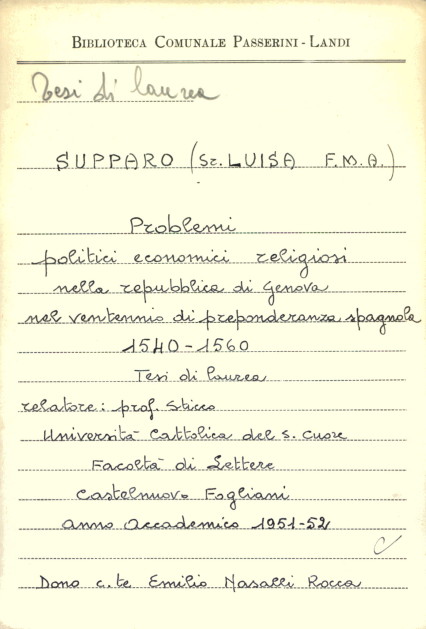 BIBLIOTECA COMUNALE PASSERINI-LANDI
Tesi di laurea
SUPPARO (Sr. LUISA F.M.A.)
Problemi
politici economici religiosi
nella repubblica di Genova
nel ventennio di preponderanza spagnola
1540-1560
Tesi di laurea
relatore: prof. Sticco
Università Cattolica del S. Cuore
Facoltà di Lettere
Castelnuovo Fogliani
anno accademico 1951-52
C
Dono c.te Emilio Nasalli Rocca